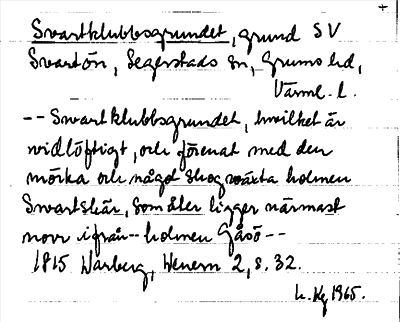 Svartklubbsgrundet, grund SV
Svartön, Segerstads sn, Grums hd,
Värml. l.
-- Svartklubbsgrundet, hwilket är
widlöftigt, och förenat med den
mörka och något skogwäxta holmen
Swartskär, som åter ligger närmast
norr ifrån -- holmen Gåsö --
1815 Warberg, Wenern 2, s. 32.
1965.